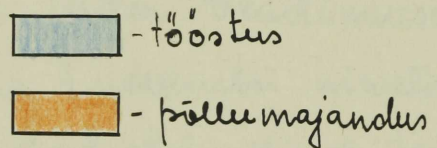 - tööstus
- põllumajandus